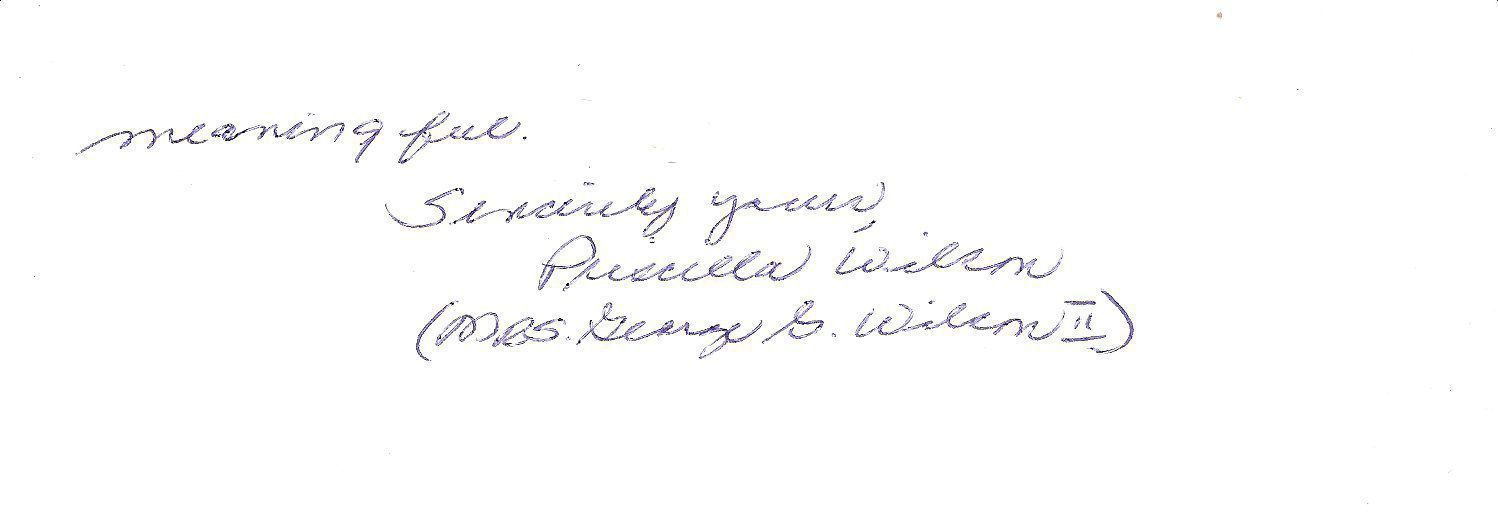 meaningful.
Sincerely yours,
Priscilla Wilson
(Mrs. George G. Wilson II)